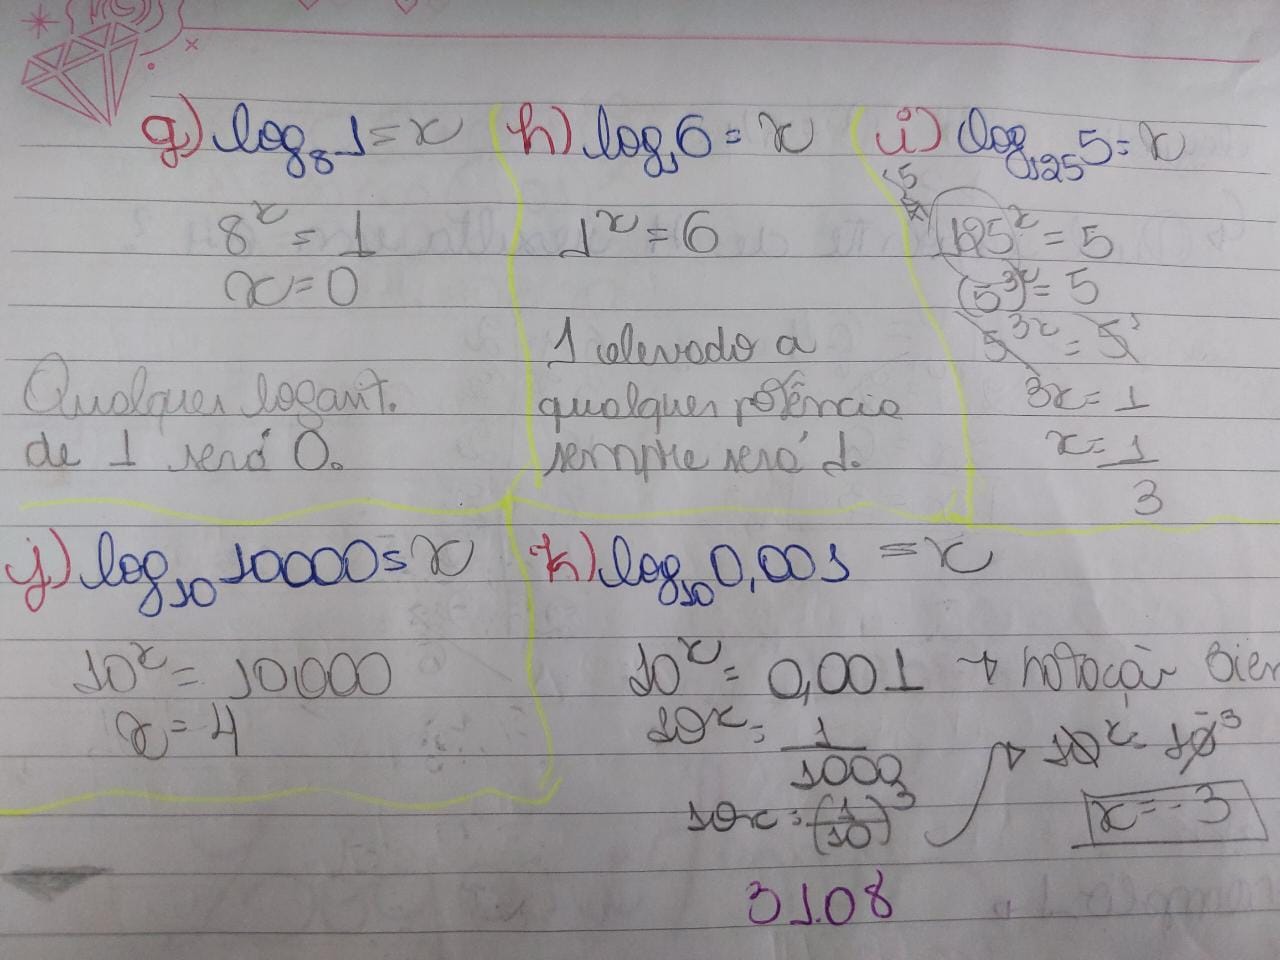 g) log₈1 = x
8ˣ = 1
x = 0
Qualquer logarit.
de 1 será 0.
h) log₁6 = x
1ˣ = 6
1 elevado a
qualquer potência
sempre será 1.
i) log₁₂₅5 = x
125ˣ = 5
(5³)ˣ = 5
5³ˣ = 5¹
3x = 1
x = 1
3
j) log₁₀10000 = x
10ˣ = 10000
x = 4
k) log₁₀0,001 = x
10ˣ = 0,001 → notação
10ˣ = 1
1000
10x = (1/10)³
10ˣ = 10⁻³
x = -3
31.08